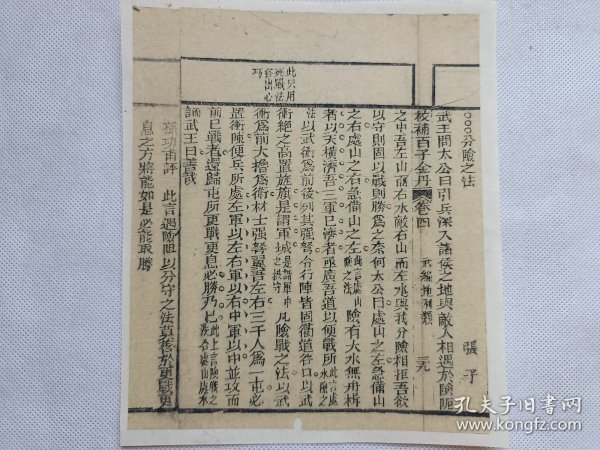 ○○○分險之法
武王問太公曰引兵深入諸侯之地與敵人相遇於險阨
校補百子金丹 卷四 武編地利類 三九
之中吾左山而右水敵右山而左水與我分險相拒吾欲
以守則固以戰則勝爲之柰何太公曰處山之左急備山
之右處山之右急備山之左此言處山險之法險有大水無舟楫
者以天橫濟吾三軍已渉者亟廣吾道以便戰所此言處水險之
法以武衝爲前後列其强弩令行陣皆固衢道谷口以武
衝絕之高置旌旗是謂軍城是謂軍中之拱守凡險戰之法以武
衝爲前大櫓爲衛材士强弩翼吾左右三千人爲一屯必
置衝陣便兵所處左軍以左右軍以右中軍以中並攻而
前已戰者還歸屯所更戰更息必勝乃已此上言險戰之法合處山處水
而言武王曰善哉
孫功甫評 此言遇險阨以分守之法莫善於更戰更
息之方將能如是必能取勝
此只用
死戰法
谷出必
巧
張子
孔夫子旧书网
www.kongfz.com